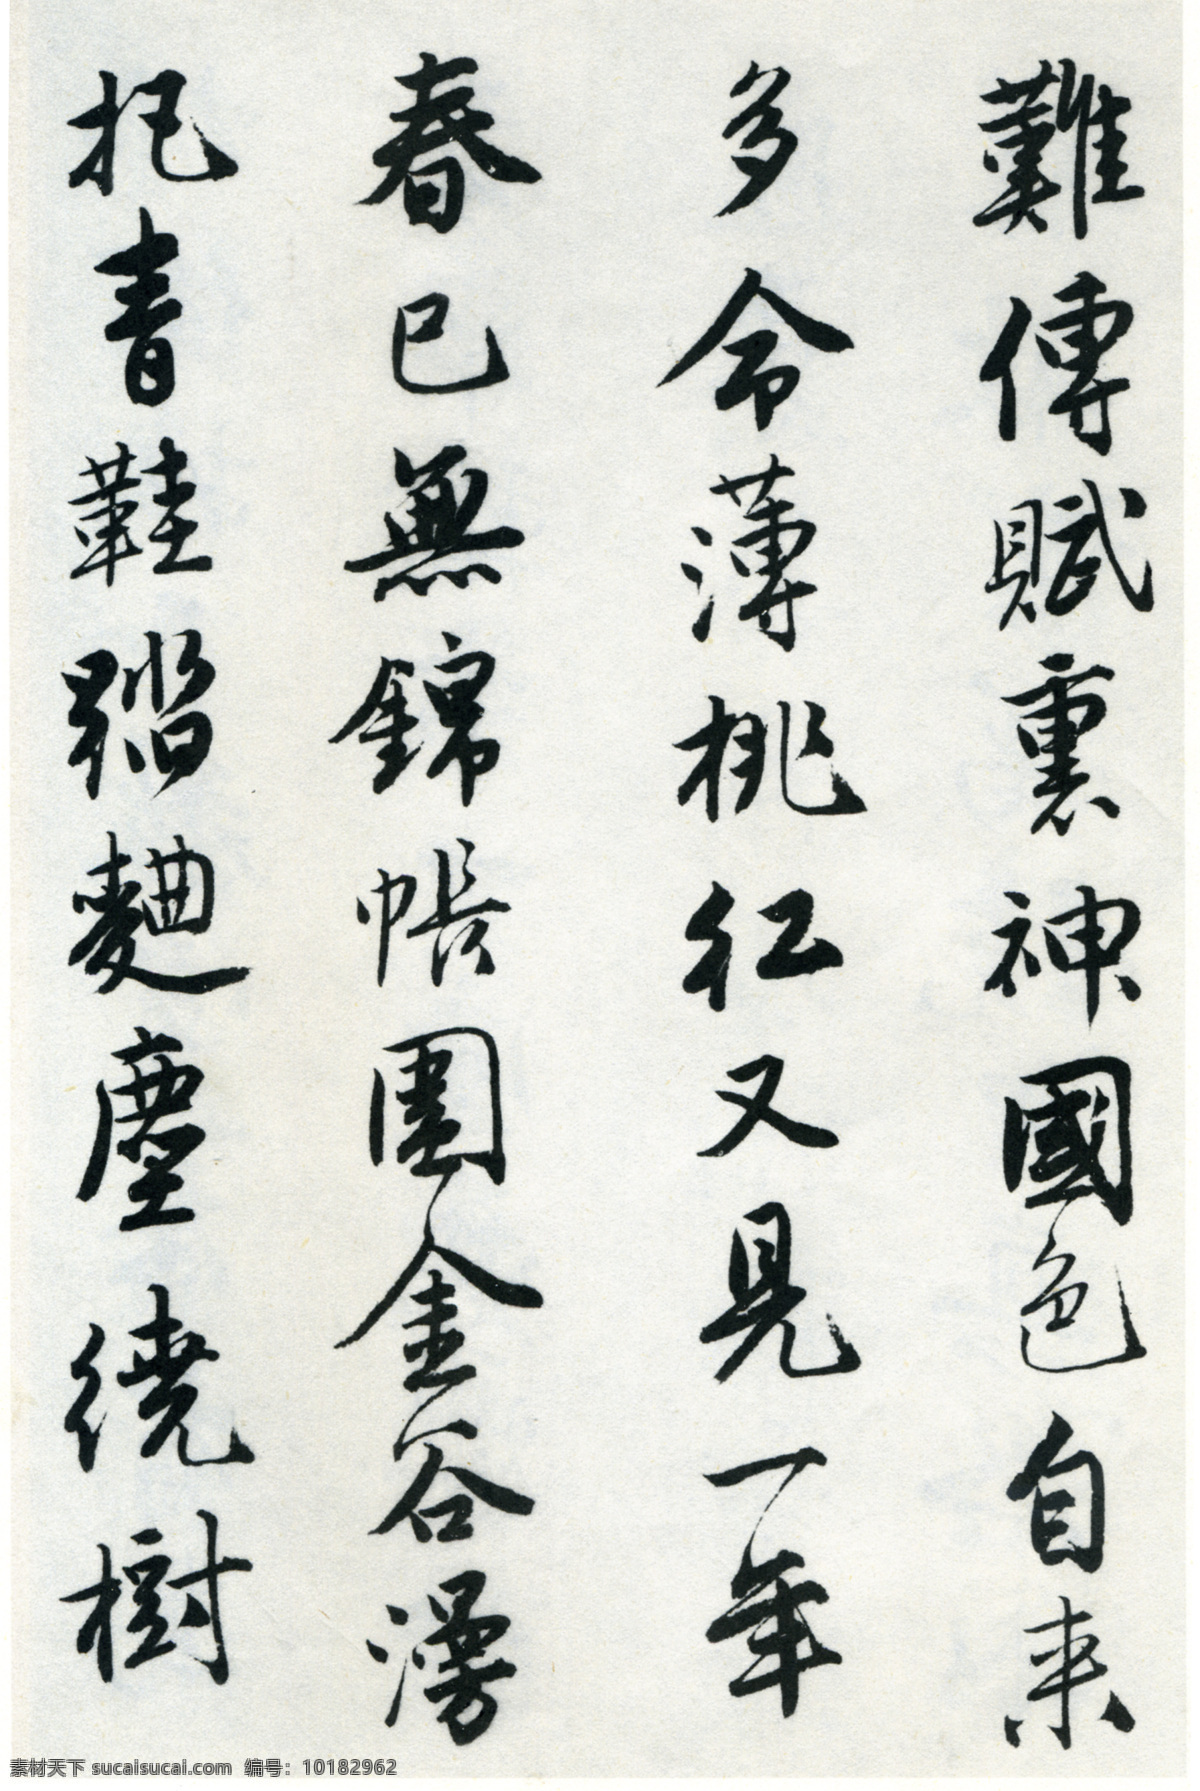 難傳賦裏神國色自来
多令薄桃紅又見一年
春已無錦帳圍金谷漫
把青鞋踏麴塵繞樹
素材天下 sucaisucai.com 编号：10182962